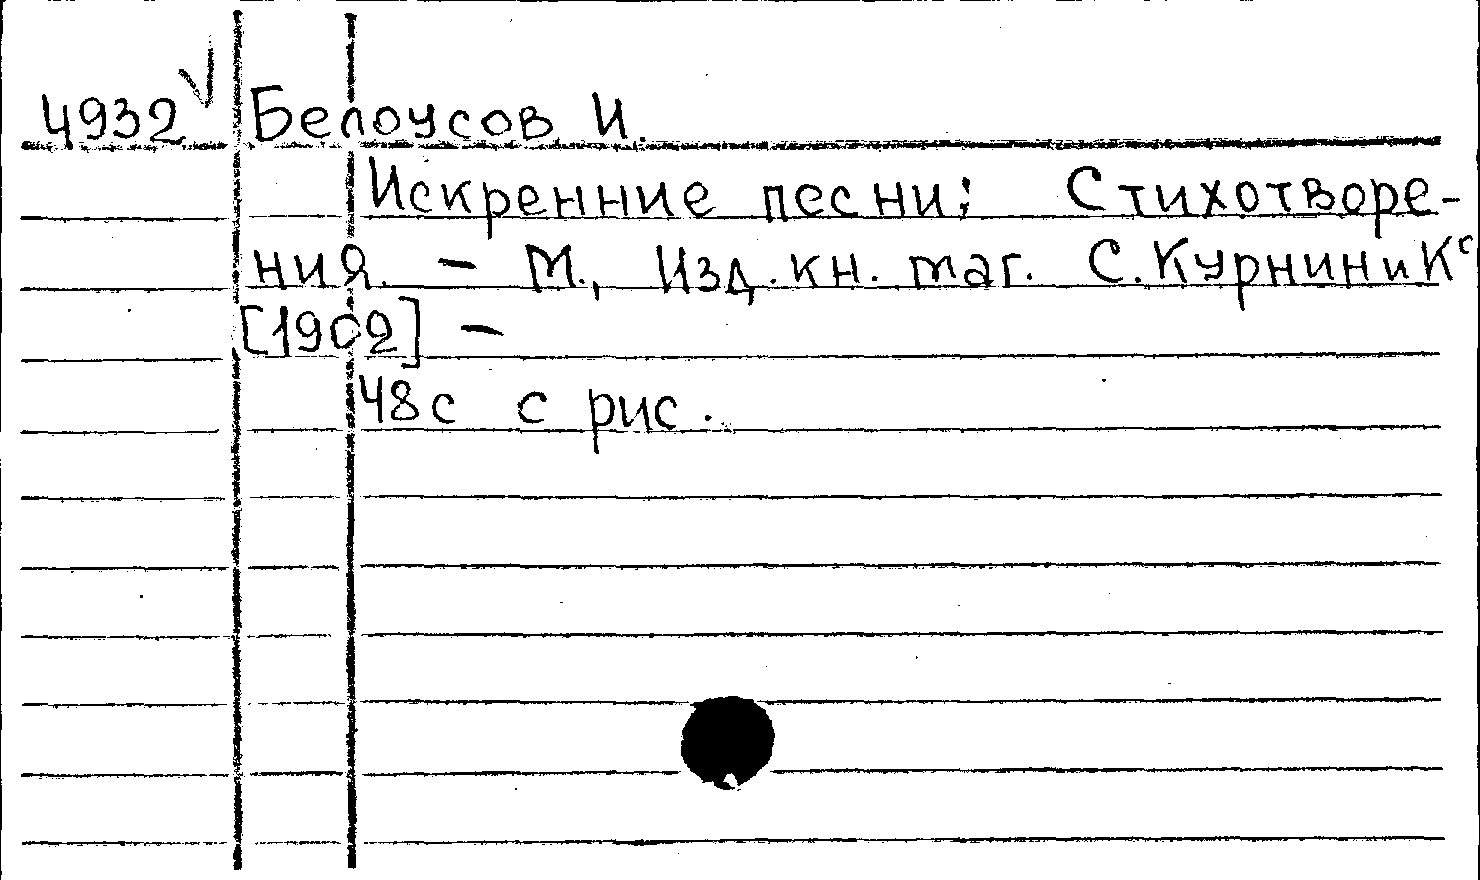 4932 Белоусов И.
Искренние песни; Стихотворе-
ния. – М., Изд. кн. маг. С. Курнин и Кᵒ
[1902] –
48с с рис.